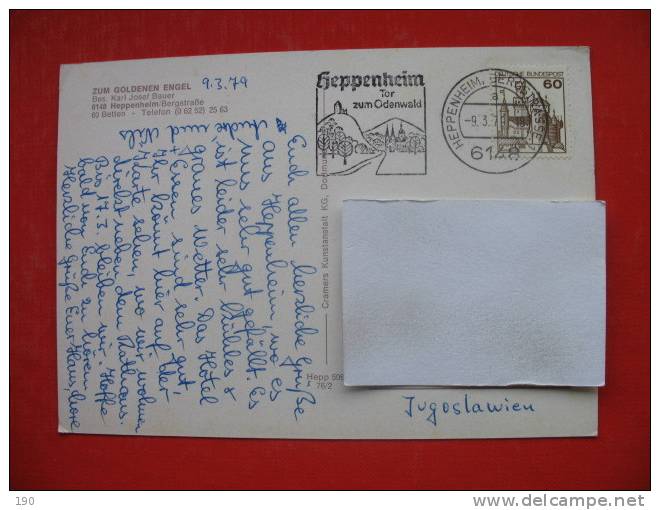 ZUM GOLDENEN ENGEL
Bes. Karl Josef Bauer
6148 Heppenheim/Bergstraße
60 Betten - Telefon (0 62 52) 25 63
9.3.79
Euch allen herzliche Grüße
aus Heppenheim, wo es
uns sehr gut gefällt. Es
ist leider sehr kühles &
graues Wetter. Das Hotel
+ Essen sind sehr gut,
Ihr könnt hier auf der
Karte sehen, wo wir wohnen
direkt neben dem Rathaus.
Bis 17.3. bleiben wir. Hoffe
bald von Euch zu hören.
Herzliche Grüße Euer Hans, Lore
und Nils
Heppenheim
Tor
zum Odenwald
HEPPENHEIM, BERGSTRASSE
-9.3.79
6148
DEUTSCHE BUNDESPOST
60
Cramers Kunstanstalt KG, Dortmund
Hepp 506
76/2
Jugoslawien
190
www.delcampe.net